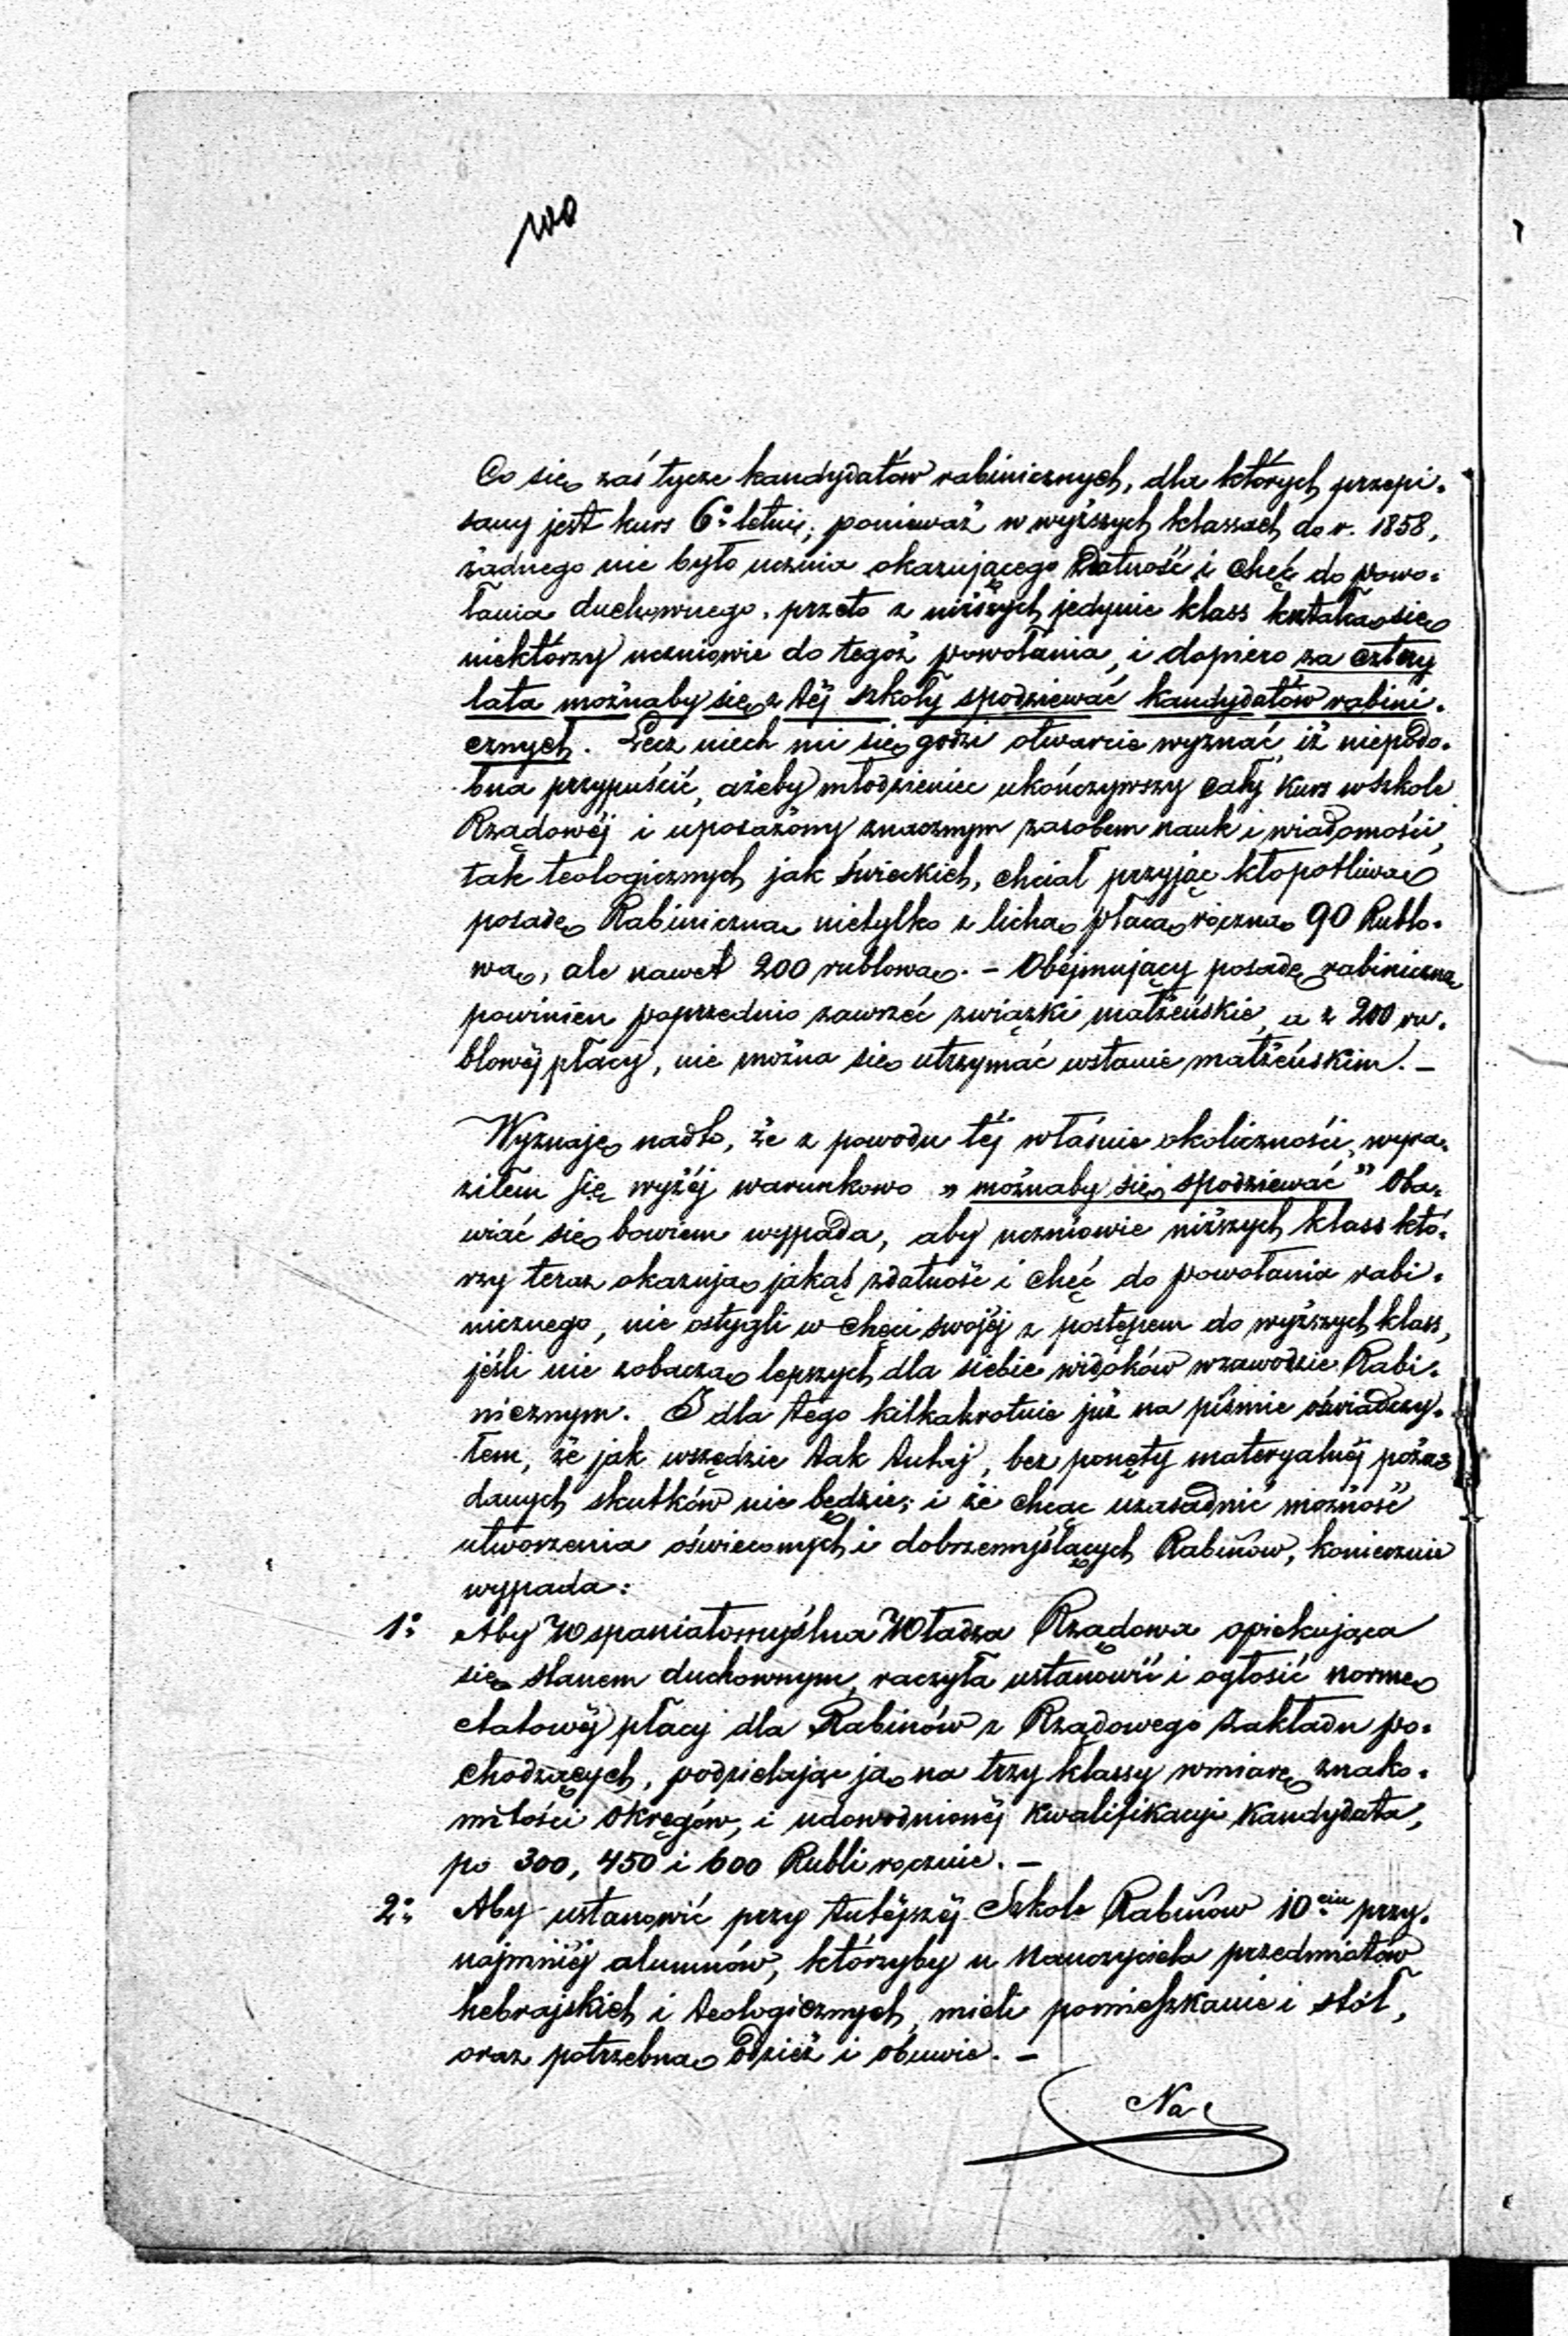 100
Co się zaś tycze kandydatów rabinicznych, dla których przepi-
sany jest kurs 6º letni; ponieważ w wyższych klassach do r. 1858,
żadnego nie było ucznia okazującego zdatność i chęć do powo-
łania duchownego, przeto z niższych jedynie klass kształcą się
niektórzy uczniowie do tegoż powołania, i dopiero za cztery
lata możnaby się z téj szkoły spodziewać kandydatów rabini-
cznych. Lecz niech mi się godzi otwarcie wyznać iż niepodo-
bna przypuścić, ażeby młodzieniec ukończywszy cały kurs w szkole
Rządowéj i uposażony znacznym zasobem nauk i wiadomości,
tak teologicznych jak świeckich, chciał przyjąc kłopotliwą
posadę Rabiniczną nietylko z lichą płacą roczną 90 Rublo-
wą, ale nawet 200 rublową. – Obejmujący posadę rabiniczną
powinien poprzednio zawrzéć związki małżeńskie, a z 200 ru-
blowéj płacy, nie można się utrzymać w stanie małżeńskim. –
Wyznaję nadto, że z powodu téj właśnie okoliczności, wyra-
ziłem się wyżéj warunkowo „możnaby się spodziewać” Oba-
wiać się bowiem wypada, aby uczniowie niższych klass któ-
rzy teraz okazują jakąś zdatność i chęć do powołania rabi-
nicznego, nie ostygli w chęci swojéj z postępem do wyższych klass,
jeśli nie zobaczą lepszych dla siebie widoków w zawodzie Rabi-
nicznym. I dla tego kilkakrotnie już na piśmie oświadczy-
łem, że jak wszędzie tak tutaj, bez ponęty materyalnéj pożą-
danych skutków nie będzie; i że chcąc uzasadnić możność
utworzenia oświeconych i dobrzemyślących Rabinów, koniecznie
wypada:
1º Aby Wspaniałomyślna Władza Rządowa opiekująca
się stanem duchownym, raczyła ustanowić i ogłosić normę
etatowéj płacy dla Rabinów z Rządowego Zakładu po-
chodzących, podzielając ją na trzy klassy w miarę znako-
mitości okręgów, i udowodnionéj kwalifikacyi Kandydata,
po 300, 450 i 600 Rubli rocznie. –
2º Aby ustanowić przy tutéjszéj Szkole Rabinów 10ciu przy-
najmniéj alumnów, którzyby u Nauczyciela przedmiotów
hebrajskich i teologicznych, mieli pomieszkanie i stół,
oraz potrzebną odzież i obuwie. –
Na